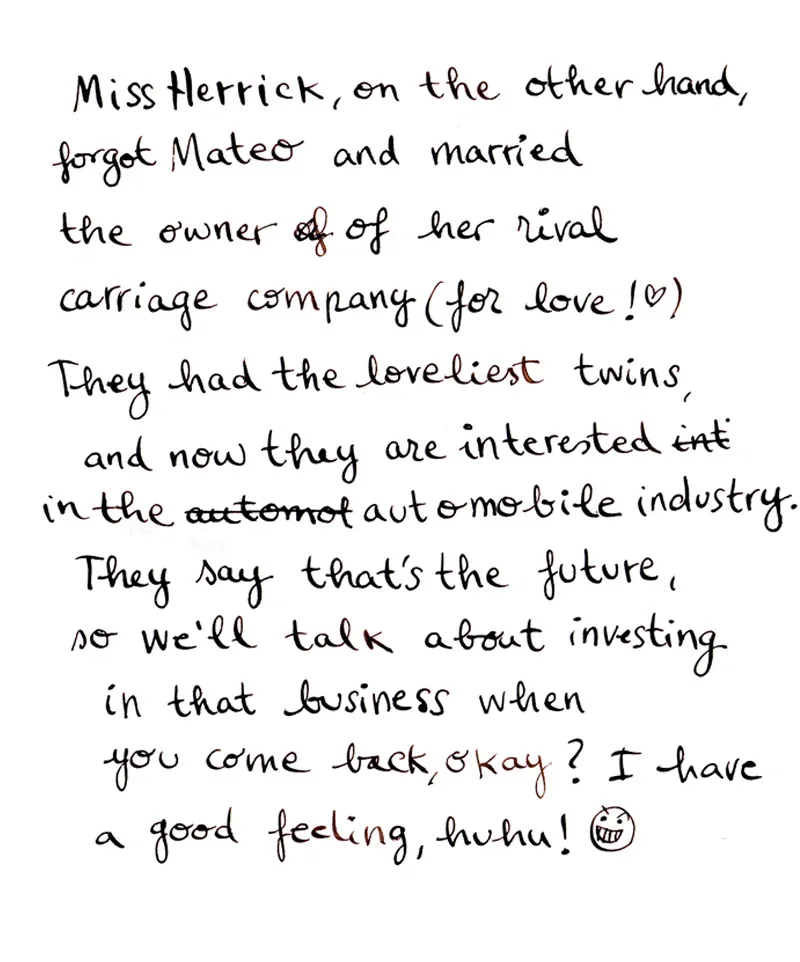 Miss Herrick, on the other hand,
forgot Mateo and married
the owner of of her rival
carriage company (for love!♡)
They had the loveliest twins,
and now they are interested int
in the automot automobile industry.
They say that's the future,
so we'll talk about investing
in that business when
you come back, okay? I have
a good feeling, huhu!